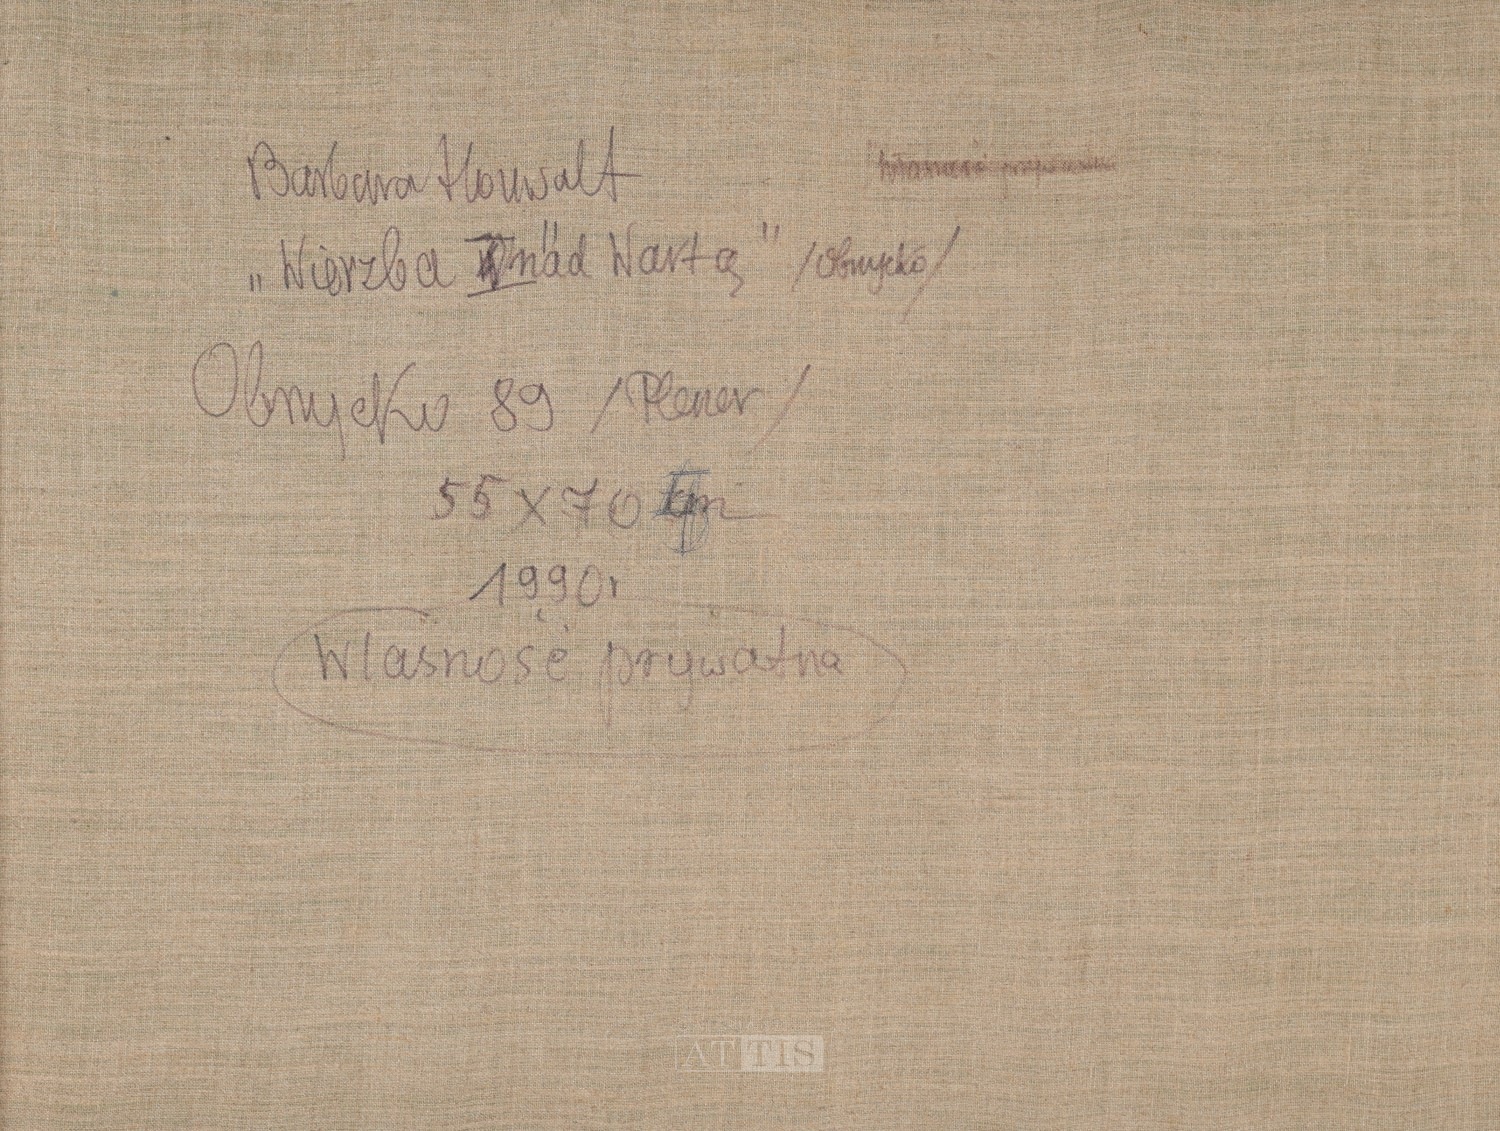 Barbara Houwalt
własność prywatna
„Wierzba nad Wartą" /Obrzycko/
Obrzycko 89 /Plener/
55 x 70 cm
1990r
Własność prywatna
ATTIS